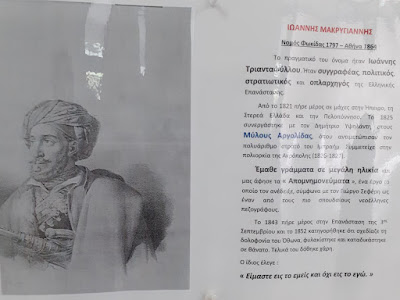 ΙΩΑΝΝΗΣ ΜΑΚΡΥΓΙΑΝΝΗΣ
Νομός Φωκίδας 1797 – Αθήνα 1864
Το πραγματικό του όνομα ήταν Ιωάννης
Τριανταφύλλου. Ήταν συγγραφέας, πολιτικός
στρατιωτικός και οπλαρχηγός της Ελληνικής
Επανάστασης.
Από το 1821 πήρε μέρος σε μάχες στην Ήπειρο, τη
Στερεά Ελλάδα και την Πελοπόννησο. Το 1825
συνεργάστηκε με τον Δημήτριο Υψηλάντη στους
Μύλους Αργολίδας, όπου αντιμετώπισαν τον
πολυάριθμο στρατό του Ιμπραήμ. Συμμετείχε στην
πολιορκία της Ακρόπολης (1826-1827).
Έμαθε γράμματα σε μεγάλη ηλικία και
μας άφησε τα « Απομνημονεύματα », ένα έργο το
οποίο τον ανέδειξε, σύμφωνα με τον Γιώργο Σεφέρη ως
έναν από τους πιο σπουδαίους νεοέλληνες
πεζογράφους.
Το 1843 πήρε μέρος στην Επανάσταση της 3ης
Σεπτεμβρίου και το 1852 κατηγορήθηκε ότι σχεδίαζε τη
δολοφονία του Όθωνα, φυλακίστηκε και καταδικάστηκε
σε θάνατο. Τελικά του δόθηκε χάρη.
Ο ίδιος έλεγε :
« Είμαστε εις το εμείς και όχι εις το εγώ. »